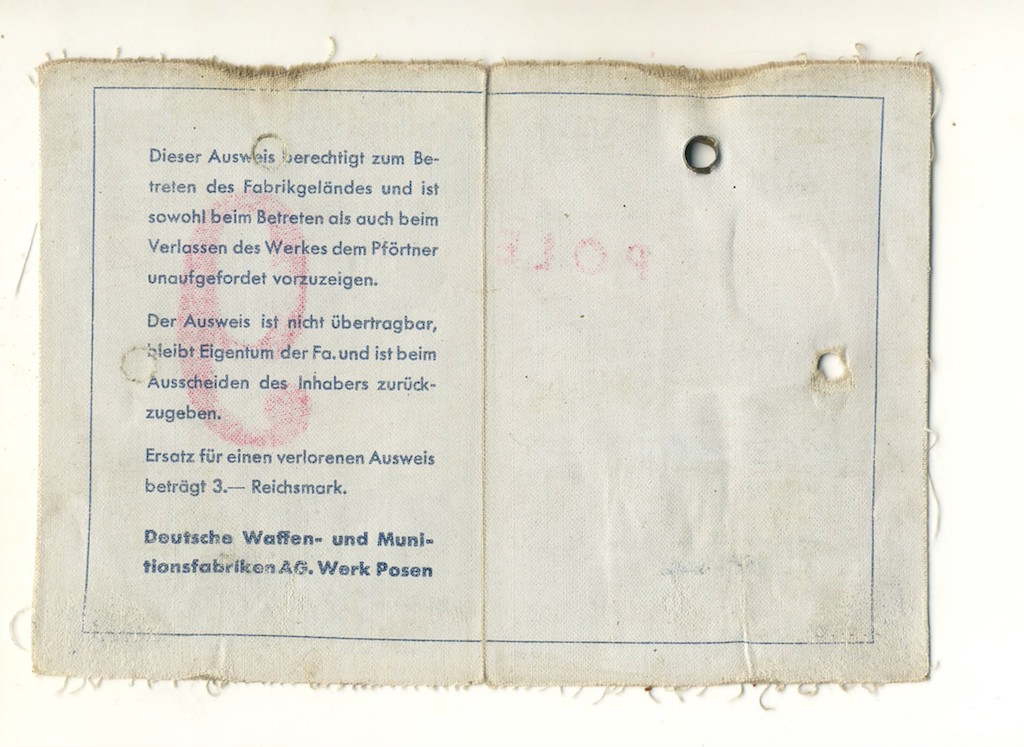 Dieser Ausweis berechtigt zum Be-
treten des Fabrikgeländes und ist
sowohl beim Betreten als auch beim
Verlassen des Werkes dem Pförtner
unaufgefordet vorzuzeigen.
Der Ausweis ist nicht übertragbar,
bleibt Eigentum der Fa. und ist beim
Ausscheiden des Inhabers zurück-
zugeben.
Ersatz für einen verlorenen Ausweis
beträgt 3.— Reichsmark.
Deutsche Waffen- und Muni-
tionsfabriken AG. Werk Posen
9
POLE